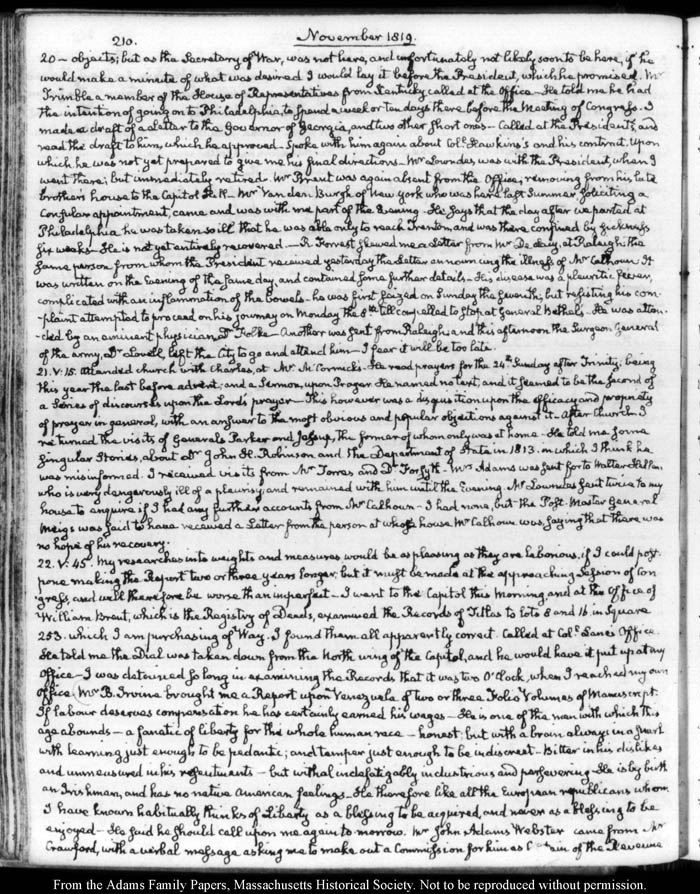 210. November 1819.
20 – objects; but as the Secretary of War, was not here, and unfortunately not likely soon to be here, if he
would make a minute of what was desired I would lay it before the President, which he promised. Mr
Trimble a member of the House of Representatives from Kentucky called at the Office – He told me he had
the intention of going on to Philadelphia, to spend a week or ten days there before the Meeting of Congress. I
made a draft of a Letter to the Governor of Georgia, and two other short ones – Called at the President's, and
read the draft to him, which he approved – Spoke with him again about Coll. Hawkins's and his contract, upon
which he was not yet prepared to give me his final directions – Mr Lowndes was with the President, when I
went there; but immediately retired. Mr Brent was again absent from the Office; removing from his late
brother's house to the Capitol Hill – Mr Van den Burgh of New York who was here last Summer soliciting a
Consular appointment, came and was with me part of the Evening – He says that the day after we parted at
Philadelphia he was taken so ill that he was able only to reach Trenton, and was there confined by sickness
six weeks – He is not yet entirely recovered. – R. Forrest shewed me a Letter from Mr De Lacy, at Raleigh; the
same person from whom the President received yesterday the Letter announcing the illness of Mr Calhoun. It
was written on the Evening of the same day, and contained some further details – His disease was a pleuritic fever,
complicated with an inflammation of the Bowels – he was first seized on Sunday the seventh; but resisting his com-
-plaint attempted to proceed on his journey on Monday the 8th till compelled to stop at General Bethels. He was atten-
-ded by an eminent physician, Dr Folke – Another was sent from Raleigh; and this afternoon the Surgeon General
of the army, Dr Lovell, left the City to go and attend him – I fear it will be too late.
21. V:15. Attended church with Charles, at Mr McCormick's. He read prayers for the 24th Sunday after Trinity; being
this year the last before advent; and a Sermon, upon Prayer. He named no text; and it seemed to be the second of
a Series of discourses upon the Lord's prayer – This however was a disquisition upon the efficacy and propriety
of prayer in general, with an answer to the most obvious and popular objections against it – After Church I
returned the visits of Generals Parker and Jesup, the former of whom only was at home – He told me some
singular Stories, about Dr John H. Robinson and the Department of State in 1813. on which I think he
was misinformed. I received visits from Mr Torres and Dr Forsyth – Mrs Adams was sent for to Walter Hellen,
who is very dangerously ill of a pleurisy; and remained with him until the Evening. Mr Lowndes sent twice to my
house to enquire if I had any further accounts from Mr Calhoun – I had none, but the Post-Master General
Meigs was said to have received a Letter from the person at whose house Mr Calhoun was, saying that there was
no hope of his recovery.
22. V:45. My researches into weights and measures would be as pleasing as they are laborious, if I could post-
pone making the Report two or three years longer, but it must be made at the approaching Session of Con-
gress, and will therefore be worse than imperfect – I went to the Capitol this Morning and at the Office of
William Brent, which is the Registry of Deeds, examined the Records of Titles to Lots 8 and 16 in Square
253. which I am purchasing of Way. I found them all apparently correct. Called at Coll. Lane's Office.
He told me the Dial was taken down from the North wing of the Capitol, and he would have it put up at my
Office – I was detained so long in examining the Records that it was two O'Clock, when I reached my own
office. Mr B. Irvine brought me a Report upon Venezuela of two or three Folio Volumes of Manuscript.
If labour deserves compensation he has certainly earned his wages – He is one of the men with which this
age abounds – a fanatic of liberty for the whole human race – honest; but with a brain always in a snarl
with learning just enough to be pedantic; and temper just enough to be indiscreet – Bitter in his dislikes
and unmeasured in his resentments – but withal indefatigably industrious and persevering – He is by birth
an Irishman, and has no native American feelings. He therefore like all the European republicans whom
I have known habitually thinks of Liberty as a blessing to be acquired, and never as a blessing to be
enjoyed – He said he should call upon me again to morrow. Mr John Adams Webster came from Mr
Crawford, with a verbal message asking me to make out a Commission for him as Captain of the Revenue
From the Adams Family Papers, Massachusetts Historical Society. Not to be reproduced without permission.